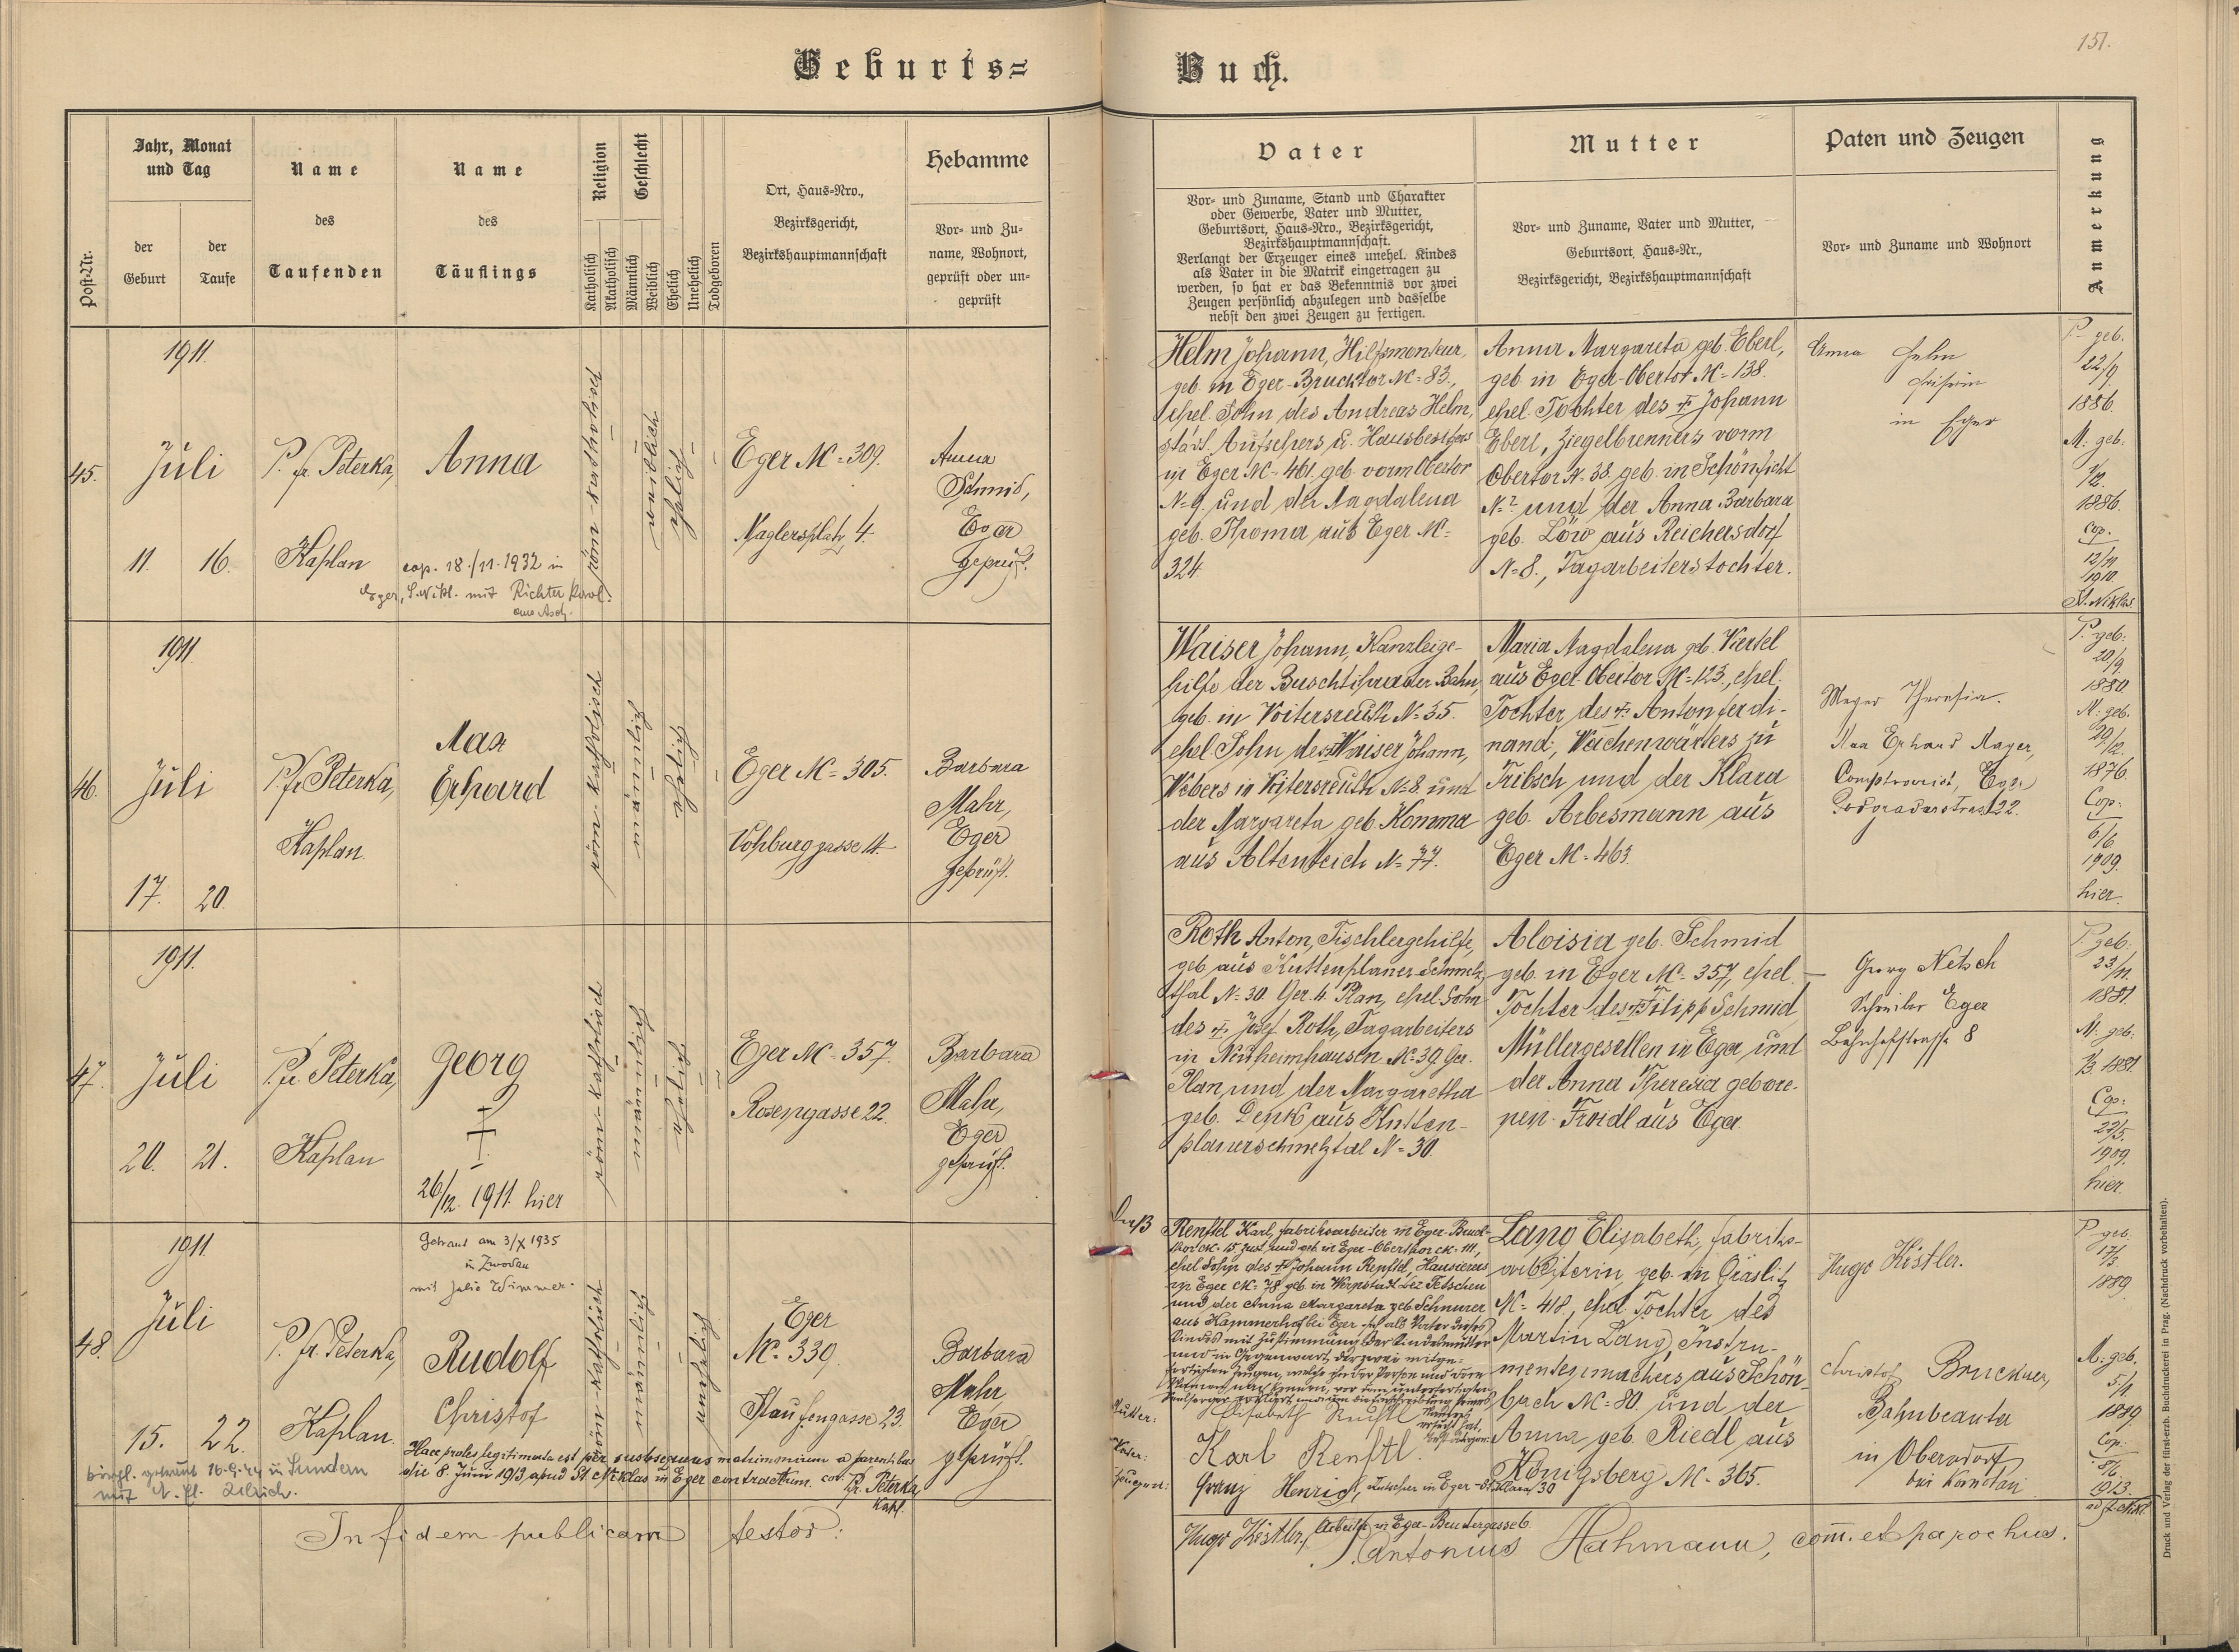 Geburts=
Buch.
151.
Post-Nr.
Jahr, Monat
und Tag
der
Geburt
der
Taufe
Name
des
Taufenden
Name
des
Täuflings
Religion
Katholisch
Akatholisch
Geschlecht
Männlich
Weiblich
Ehelich
Unehelich
Todgeboren
Ort, Haus-Nro.,
Bezirksgericht,
Bezirkshauptmannschaft
Hebamme
Vor- und Zu-
name, Wohnort,
geprüft oder un-
geprüft
Vater
Vor- und Zuname, Stand und Charakter
oder Gewerbe, Vater und Mutter,
Geburtsort, Haus-Nro., Bezirksgericht,
Bezirkshauptmannschaft.
Verlangt der Erzeuger eines unehel. Kindes
als Vater in die Matrik eingetragen zu
werden, so hat er das Bekenntnis vor zwei
Zeugen persönlich abzulegen und dasselbe
nebst den zwei Zeugen zu fertigen.
Mutter
Vor- und Zuname, Vater und Mutter,
Geburtsort, Haus-Nr.,
Bezirksgericht, Bezirkshauptmannschaft
Paten und Zeugen
Vor- und Zuname und Wohnort
Anmerkung
45.
1911.
Juli
11. 16.
P. Fr. Peterka,
Kaplan
Anna
cop. 18./11. 1932 in
Eger, S. Nikl. mit Richter Karl
aus Asch.
röm-katholisch
weiblich
ehelich
Eger N= 309.
Naglersplatz 4.
Anna
Schmid,
Eger
geprüft.
Helm Johann, Hilfsmonteur,
geb. in Eger-Brucktor N= 83.,
ehel. Sohn des Andreas Helm,
städt. Aufsehers u. Hausbesitzers
in Eger N= 461. geb. vorm Obertor
N= 9. und der Magdalena
geb. Thoma aus Eger N=
324.
Anna Margareta geb. Eberl,
geb. in Eger-Obertor N= 138.
ehel. Tochter des † Johann
Eberl, Ziegelbrenners vorm
Obertor N. 38. geb. in Schönficht
N= 2 und der Anna Barbara
geb. Löw aus Reichersdorf
N= 8., Tagarbeiterstochter.
Anna Helm
in Eger
P. geb.
22/9
1886.
M. geb.
1886.
cop.
12/11
1910
St. Niklas
46.
1911
Juli
17. 20.
P. Fr. Peterka,
Kaplan.
Max
Erhard
röm-katholisch
männlich
ehelich
Eger N= 305.
Vohburggasse 4.
Barbara
Mahr,
Eger
geprüft.
Waiser Johann, Kanzleige-
hilfe der Buschtihrader Bahn,
geb. in Voitersreuth N= 35.
ehel. Sohn des † Waiser Johann,
Webers in Voitersreuth N= 8. und
der Margareta geb. Komma
aus Altenteich N= 77.
Maria Magdalena geb. Viertel
aus Eger-Obertor N= 123., ehel.
Tochter des † Anton Ferdi-
nand, Weichenwärters zu
Tribsch und der Klara
geb. Arbesmann aus
Eger N= 463.
Mayer Theresia.
Max Erhard Mayer,
Comptoirist, Eger
22.
P. geb.
20/9
1880.
M. geb.
29/12.
1876.
Cop:
6/6
1909.
hier.
47.
1911.
Juli
20. 21.
P. Fr. Peterka,
Kaplan
Georg
†
26/12. 1911. hier
röm-katholisch
männlich
ehelich
Eger N= 357.
Rosengasse 22.
Barbara
Mahr,
Eger
geprüft.
Roth Anton, Tischlergehilfe,
geb. aus Kuttenplaner-Schmelz-
thal N= 30. Ger. H. Plan, ehel. Sohn
des † Josef Roth, Tagarbeiters
in Neuheimhausen N= 39. Ger.
Plan, und der Margaretha
geb. Denk aus Kutten-
planerschmelztal N= 30.
Aloisia geb. Schmid
geb. in Eger N= 357, ehel.
Tochter des † Filipp Schmid
Müllergesellen in Eger und
der Anna Theresia gebore-
nen Froidl aus Eger.
Georg Netsch
Schreiber Eger
Bahnhofstrasse 8
P. geb.
23/11.
1881.
M. geb.
1881.
Cop:
1909.
hier.
48.
1911
Juli
15. 22.
P. Fr. Peterka,
Kaplan.
Getraut am 3/X 1935
in Zwodau
mit Julie Wimmer.
Rudolf
Christof
röm-katholisch
männlich
unehelich
Eger
N= 339.
Staufengasse 23.
Barbara
Mahr,
Eger
geprüft.
Haec proles legitimata est per subsequens matrimonium a parentibus
die 8. Juni 1913 apud St. Niklas in Eger contractum. Fr. Peterka,
Kapl.
bürgl. getraut 16.9.44 in Sundern
mit
Renftel Karl, Fabriksarbeiter in Eger-Bruck-
tor N= 15 zust. und geb. in Eger-Oberthor N= 111,
ehel. Sohn des † Johann Renftel, Hausierers
in Eger N= 78 geb. in Wernstadt Bez. Tetschen
und der Anna Margareta geb. Schnurer
aus Kammerhof bei Eger
Kindes mit Zustimmung der Kindesmutter
und in Gegenwart der zwei mitge-
fertigten Zeugen, welche
Mutter:
Elisabeth
Vater:
Karl Renftl
Zeugen:
Franz Henrich, Kutscher in Eger
Hugo Kistler, Arbeiter in Eger-Brudergasse 6.
Lang Elisabeth, Fabriks-
arbeiterin, geb. in Graslitz
N= 418., ehel. Tochter des
Martin Lang, Instru-
mentenmachers aus Schön-
bach N= 80. und der
Anna geb. Riedl aus
Königsberg N= 365.
Hugo Kistler.
Christof Bruckner,
Bahnbeamter
in Oberndorf
bei Komotau
P. geb.
17/3.
1889.
M. geb.
5/1
1889
Cop:
8/6
1913.
ad St. Nikl.
In fidem publicam testor:
P. Antonius Hahmann, comm. et parochus.
Druck und Verlag der fürst-erzb. Buchdruckerei in Prag. (Nachdruck vorbehalten).